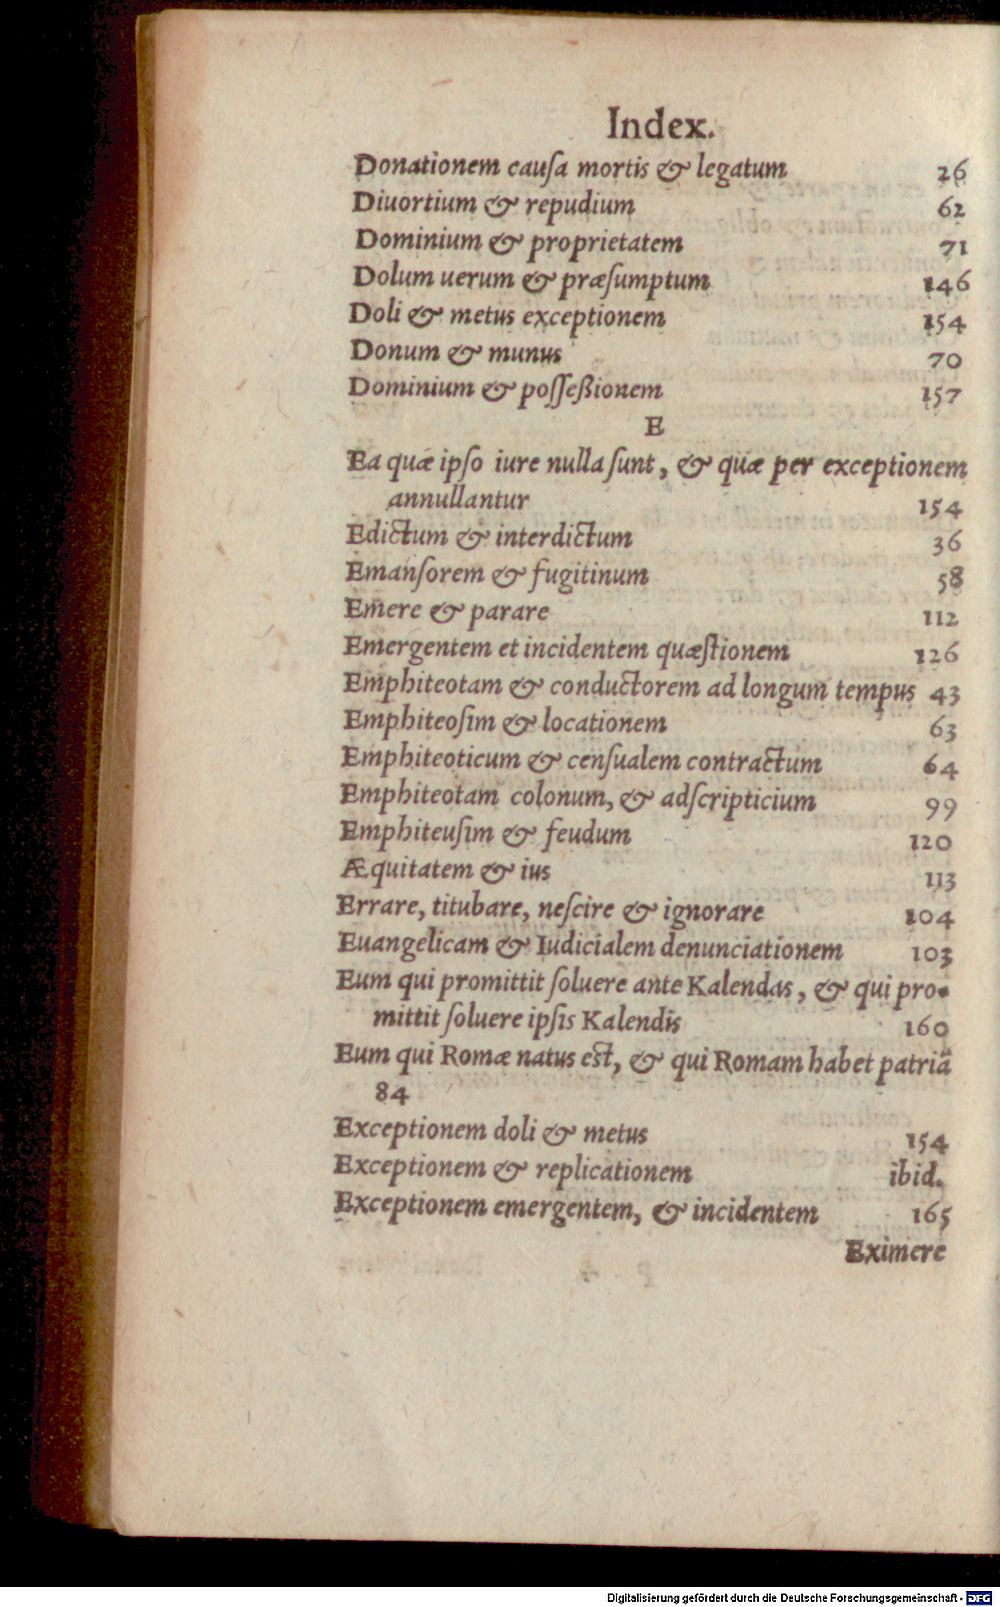 Index.
Donationem cauſa mortis & legatum 26
Diuortium & repudium 62
Dominium & proprietatem 71
Dolum uerum & præſumptum 146
Doli & metus exceptionem 154
Donum & munus 70
Dominium & poſſeßionem 157
E
Ea quæ ipſo iure nulla ſunt, & quæ per exceptionem
annullantur 154
Edictum & interdictum 36
Emanſorem & fugitinum 58
Emere & parare 112
Emergentem et incidentem quæſtionem 126
Emphiteotam & conductorem ad longum tempus 43
Emphiteoſim & locationem 63
Emphiteoticum & cenſualem contractum 64
Emphiteotam colonum, & adſcripticium 99
Emphiteuſim & feudum 120
Æquitatem & ius 113
Errare, titubare, neſcire & ignorare 104
Euangelicam & Iudicialem denunciationem 103
Eum qui promittit ſoluere ante Kalendas, & qui pro-
mittit ſoluere ipſis Kalendis 160
Eum qui Romæ natus est, & qui Romam habet patriã
84
Exceptionem doli & metus 154
Exceptionem & replicationem ibid.
Exceptionem emergentem, & incidentem 165
Eximere
Digitalisierung gefördert durch die Deutsche Forschungsgemeinschaft - DFG